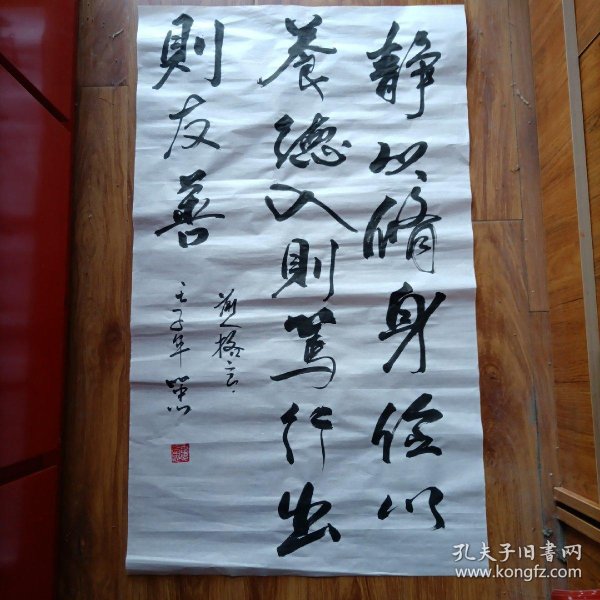 静以脩身儉以
養德入則篤行出
則友善
前人格言
壬子年
孔夫子旧書网
www.kongfz.com